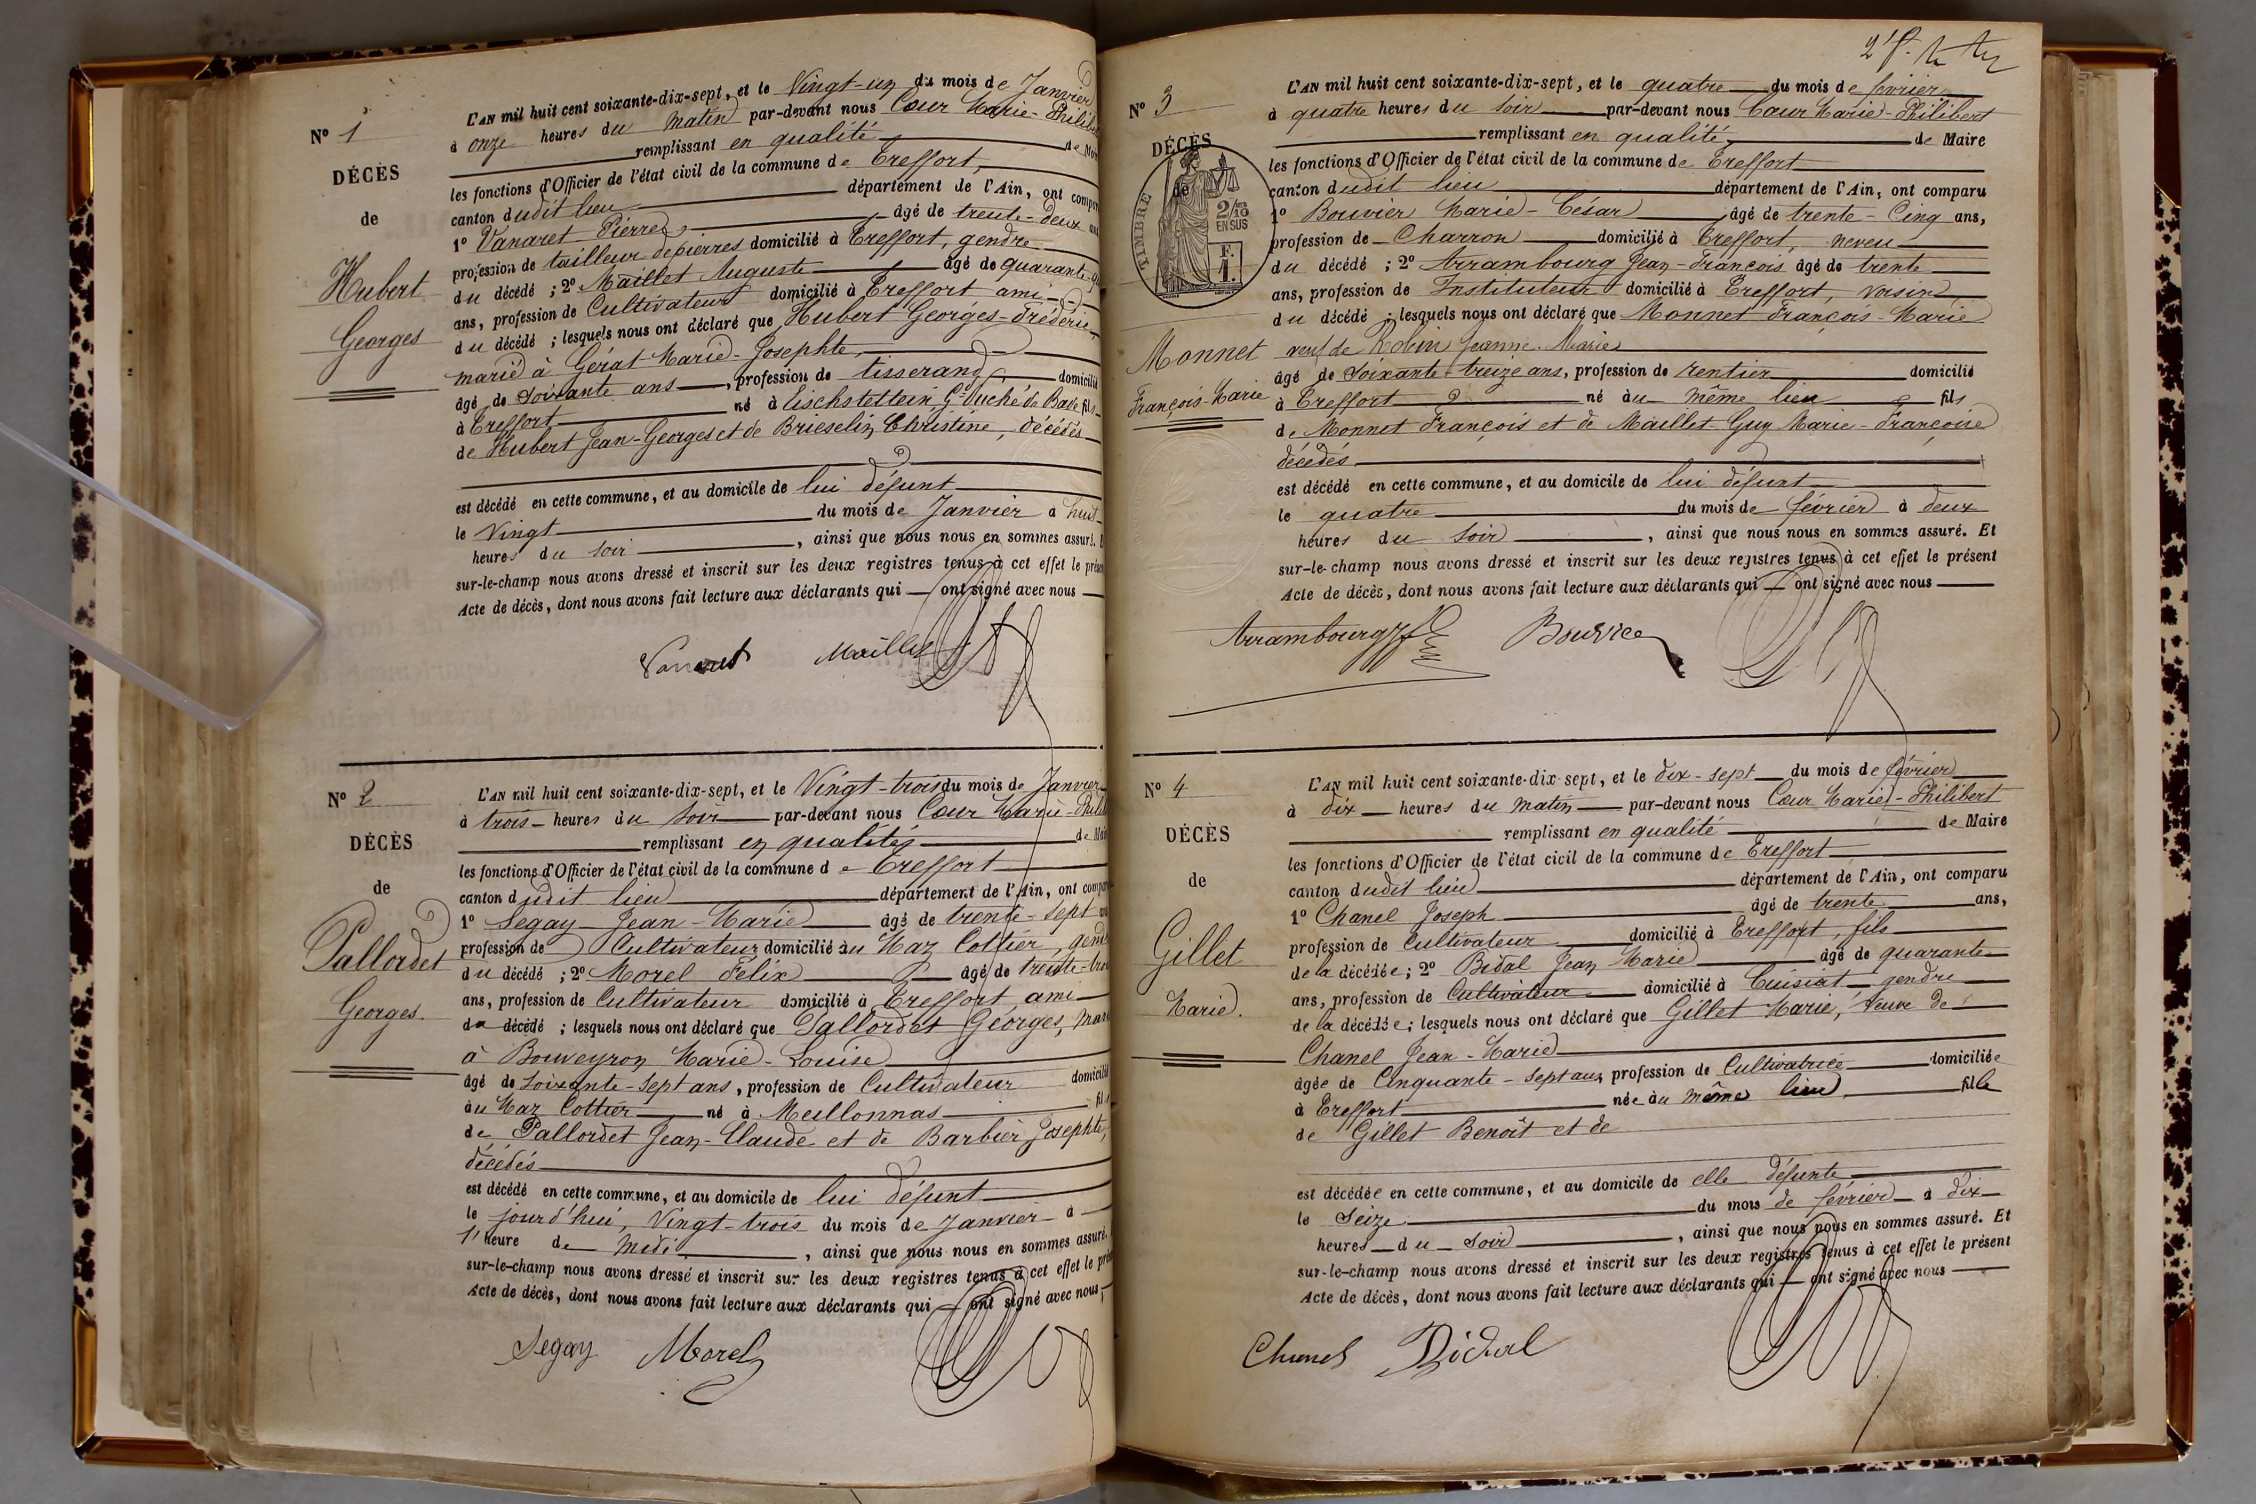 N° 1
DÉCÈS
de
Hubert
Georges
L'AN mil huit cent soixante-dix-sept, et le Vingt-un du mois de Janvier
à onze heures du matin par-devant nous Cœur Marie-Philib
remplissant en qualité de Mai
les fonctions d'Officier de l'état civil de la commune de Treffort,
canton dudit lieu département de l'Ain, ont compa
1° Vanaret Pierre âgé de trente-deux an
profession de tailleur de pierres domicilié à Treffort, gendre
du décédé ; 2° Maillet Auguste âgé de quarante-
ans, profession de Cultivateur domicilié à Treffort ami
du décédé ; lesquels nous ont déclaré que Hubert Georges-Fréderic,
marié à Gérat Marie-Josephte,
âgé de soixante ans, profession de tisserand, domicilié
à Treffort né à Eischstettein Gd Duché de Bade fils
de Hubert Jean-Georges et de Brieselin Christine, décédés
est décédé en cette commune, et au domicile de lui défunt
le vingt du mois de Janvier à huit
heures du soir, ainsi que nous nous en sommes assuré. E
sur-le-champ nous avons dressé et inscrit sur les deux registres tenus à cet effet le présen
Acte de décès, dont nous avons fait lecture aux déclarants qui ont signé avec nous
Vanaret Maillet
N° 2
DÉCÈS
de
Pallordet
Georges.
L'AN mil huit cent soixante-dix-sept, et le Vingt-trois du mois de Janvier
à trois heures du soir par-devant nous Cœur Marie-Philib
remplissant en qualité de Mai
les fonctions d'Officier de l'état civil de la commune de Treffort
canton dudit lieu département de l'Ain, ont compa
1° Segay Jean-Marie âgé de trente-sept an
profession de Cultivateur domicilié au Maz Cottier, gend
du décédé ; 2° Morel Félix âgé de trente-troi
ans, profession de Cultivateur domicilié à Treffort ami
du décédé ; lesquels nous ont déclaré que Pallordet Georges, mari
à Bouveyron Marie-Louise
âgé de soixante-sept ans, profession de Cultivateur domicilié
au Maz Cottier né à Meillonnas fils
de Pallordet Jean-Claude et de Barbier Josephte,
décédés
est décédé en cette commune, et au domicile de lui défunt
le jourd'hui, Vingt-trois du mois de Janvier à
1' heure de Midi, ainsi que nous nous en sommes assuré.
sur-le-champ nous avons dressé et inscrit sur les deux registres tenus à cet effet le pré
Acte de décès, dont nous avons fait lecture aux déclarants qui ont signé avec nous
Segay Morel
N° 3
DÉCÈS
de
TIMBRE
2/10
EN SUS
F.
1.
Monnet
François-Marie
L'AN mil huit cent soixante-dix-sept, et le quatre du mois de février
à quatre heures du soir par-devant nous Cœur Marie-Philibert
remplissant en qualité de Maire
les fonctions d'Officier de l'état civil de la commune de Treffort
canton dudit lieu département de l'Ain, ont comparu
1° Bouvier Marie-César âgé de trente-Cinq ans,
profession de Charron domicilié à Treffort, neveu
du décédé ; 2° Arrambourg Jean-François âgé de trente
ans, profession de Instituteur domicilié à Treffort, voisin
du décédé ; lesquels nous ont déclaré que Monnet François-Marie
veuf de Robin Jeanne-Marie
âgé de soixante-treize ans, profession de rentier domicilié
à Treffort né au même lieu fils
de Monnet François et de Maillet-Guy Marie-Françoise
décédés
est décédé en cette commune, et au domicile de lui défunt
le quatre du mois de février à deux
heures du soir, ainsi que nous nous en sommes assuré. Et
sur-le-champ nous avons dressé et inscrit sur les deux registres tenus à cet effet le présent
Acte de décès, dont nous avons fait lecture aux déclarants qui ont signé avec nous
Arrambourg Bouvier
N° 4
DÉCÈS
de
Gillet
Marie.
L'AN mil huit cent soixante-dix-sept, et le dix-sept du mois de février
à dix heures du matin par-devant nous Cœur Marie-Philibert
remplissant en qualité de Maire
les fonctions d'Officier de l'état civil de la commune de Treffort
canton dudit lieu département de l'Ain, ont comparu
1° Chanel Joseph âgé de trente ans,
profession de Cultivateur domicilié à Treffort, fils
de la décédée ; 2° Bidal Jean Marie âgé de quarante
ans, profession de Cultivateur domicilié à Cuisiat gendre
de la décédée ; lesquels nous ont déclaré que Gillet Marie, veuve de
Chanel Jean-Marie
âgée de Cinquante-sept ans, profession de Cultivatrice domiciliée
à Treffort née au même lieu fille
de Gillet Benoît et de
est décédée en cette commune, et au domicile de elle défunte
le Seize du mois de février à dix
heures du soir, ainsi que nous nous en sommes assuré. Et
sur-le-champ nous avons dressé et inscrit sur les deux registres tenus à cet effet le présent
Acte de décès, dont nous avons fait lecture aux déclarants qui ont signé avec nous
Chanel Bidal